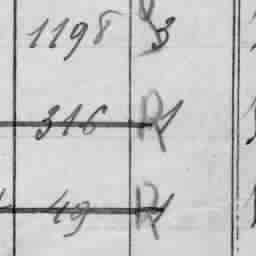 1198 3
316 R1
49 R1